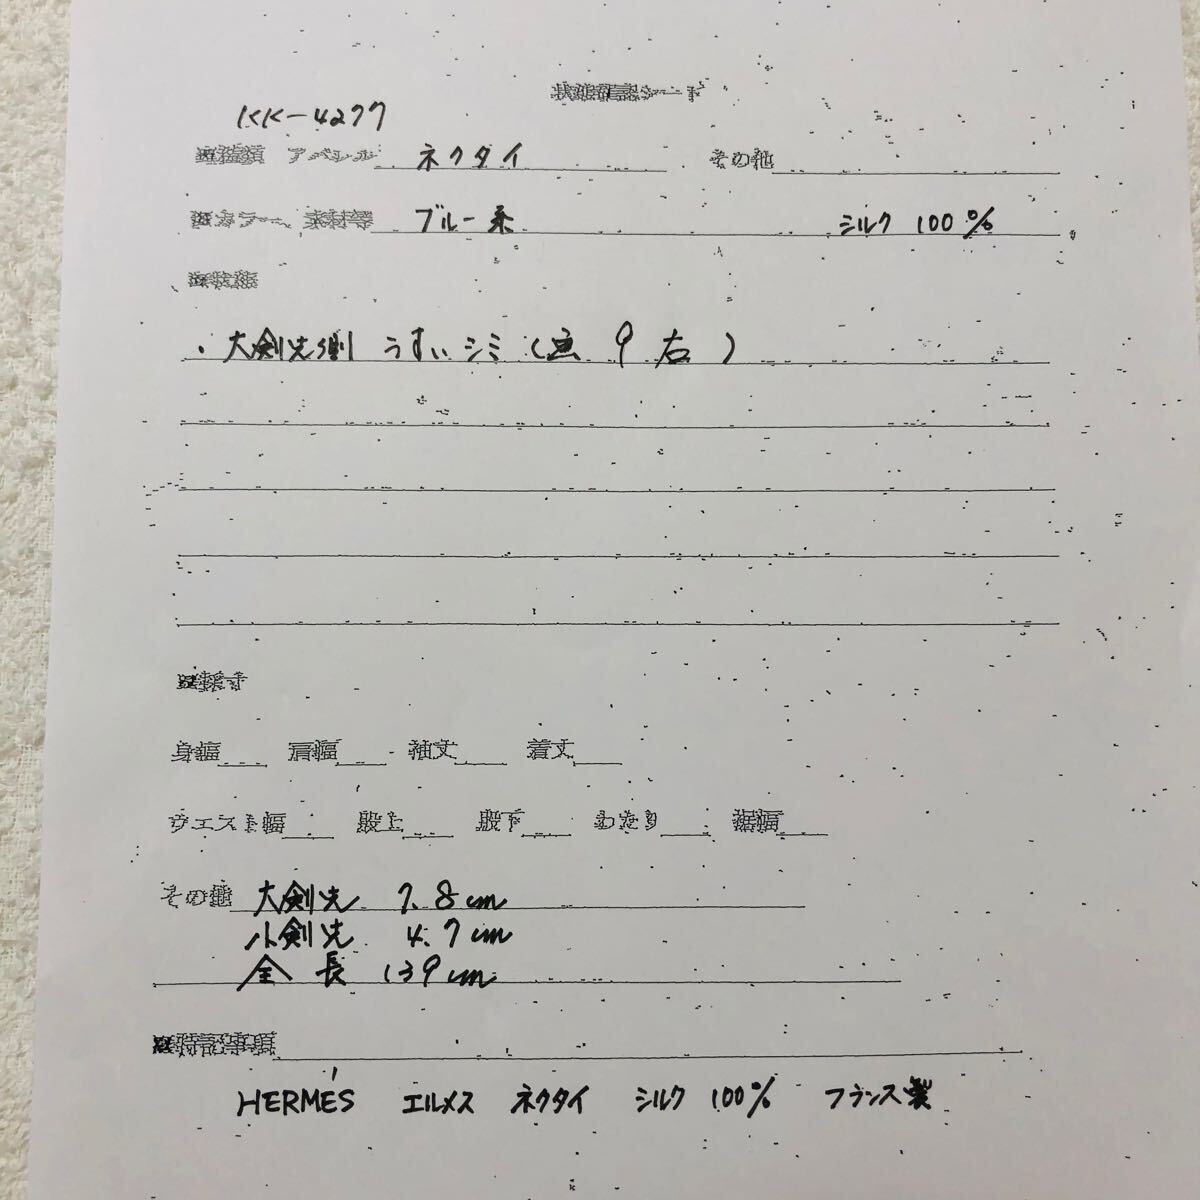 状態確認シート
KK-4277
■種類 アパレル ネクタイ その他
■カラー、素材等 ブルー系 シルク 100%
■状態
・大剣先側 うすいシミ(点 9 右)
■採寸
身幅 肩幅 袖丈 着丈
ウエスト幅 股上 股下 わたり 裾幅
その他 大剣先 7.8cm
小剣先 4.7cm
全長 139cm
■特記事項
HERMÈS エルメス ネクタイ シルク 100% フランス製